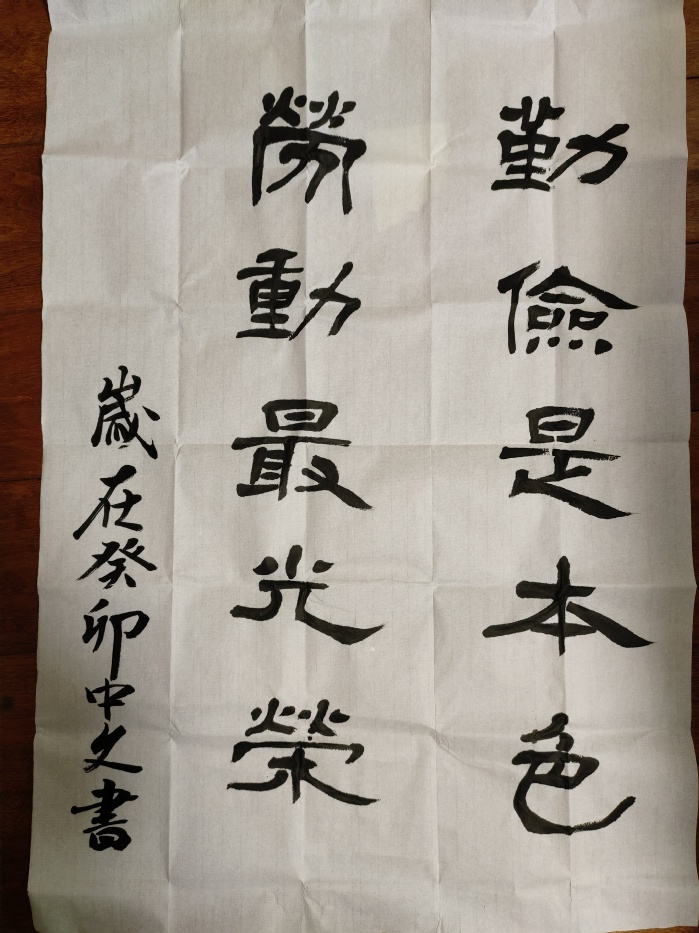 勤儉是本色
勞動最光榮
歲在癸卯中文書